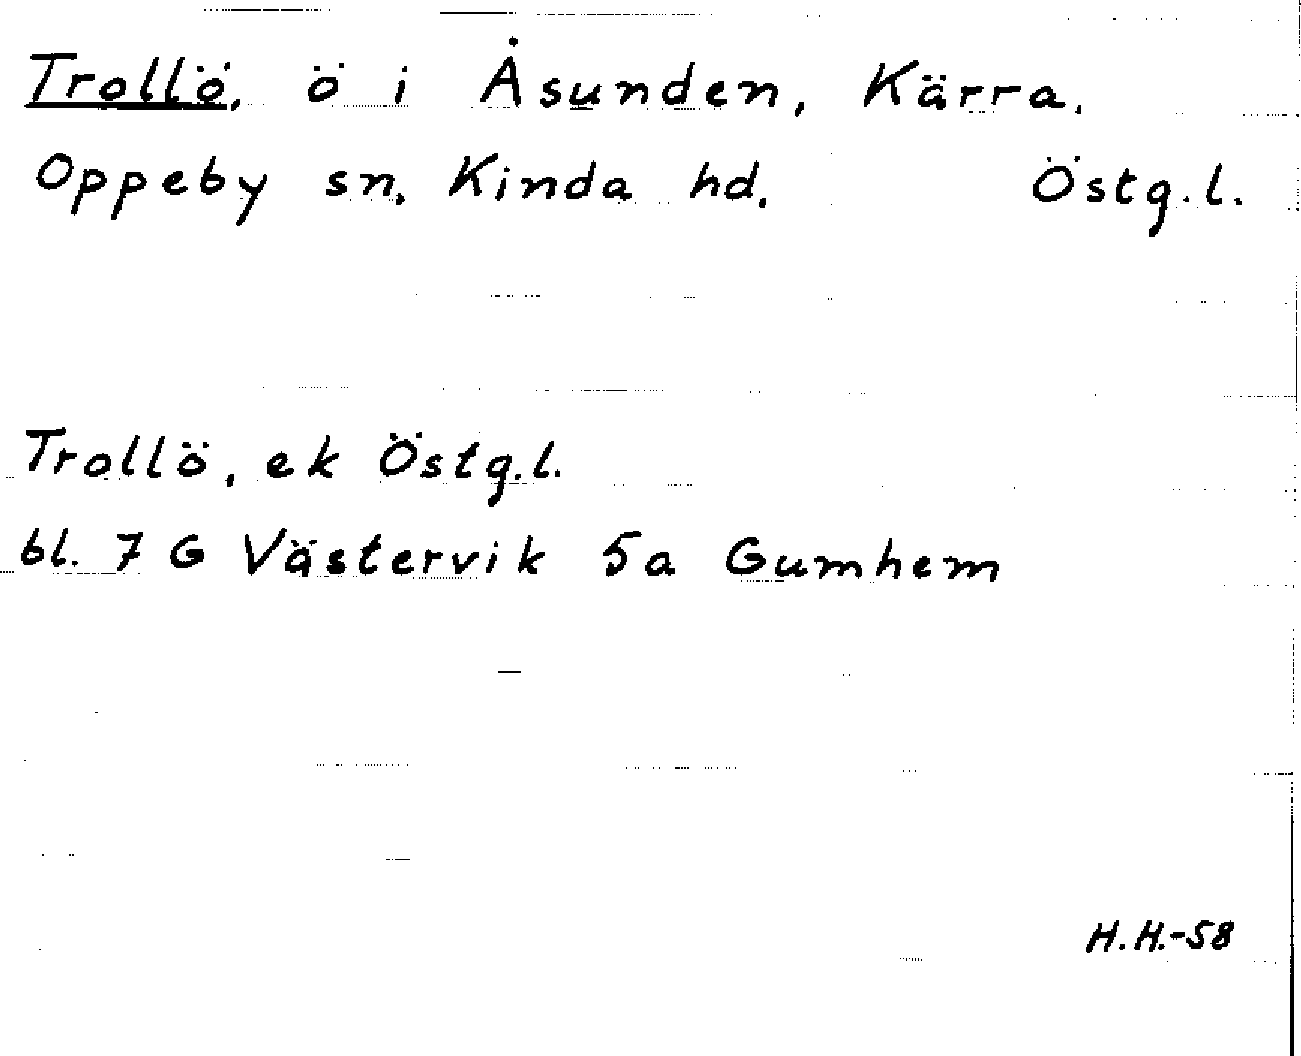 Trollö, ö i Åsunden, Kärra.
Oppeby sn. Kinda hd. Östg.l.
Trollö, ek Östg.l.
bl. 7 G Västervik 5a Gumhem
H.H.-58